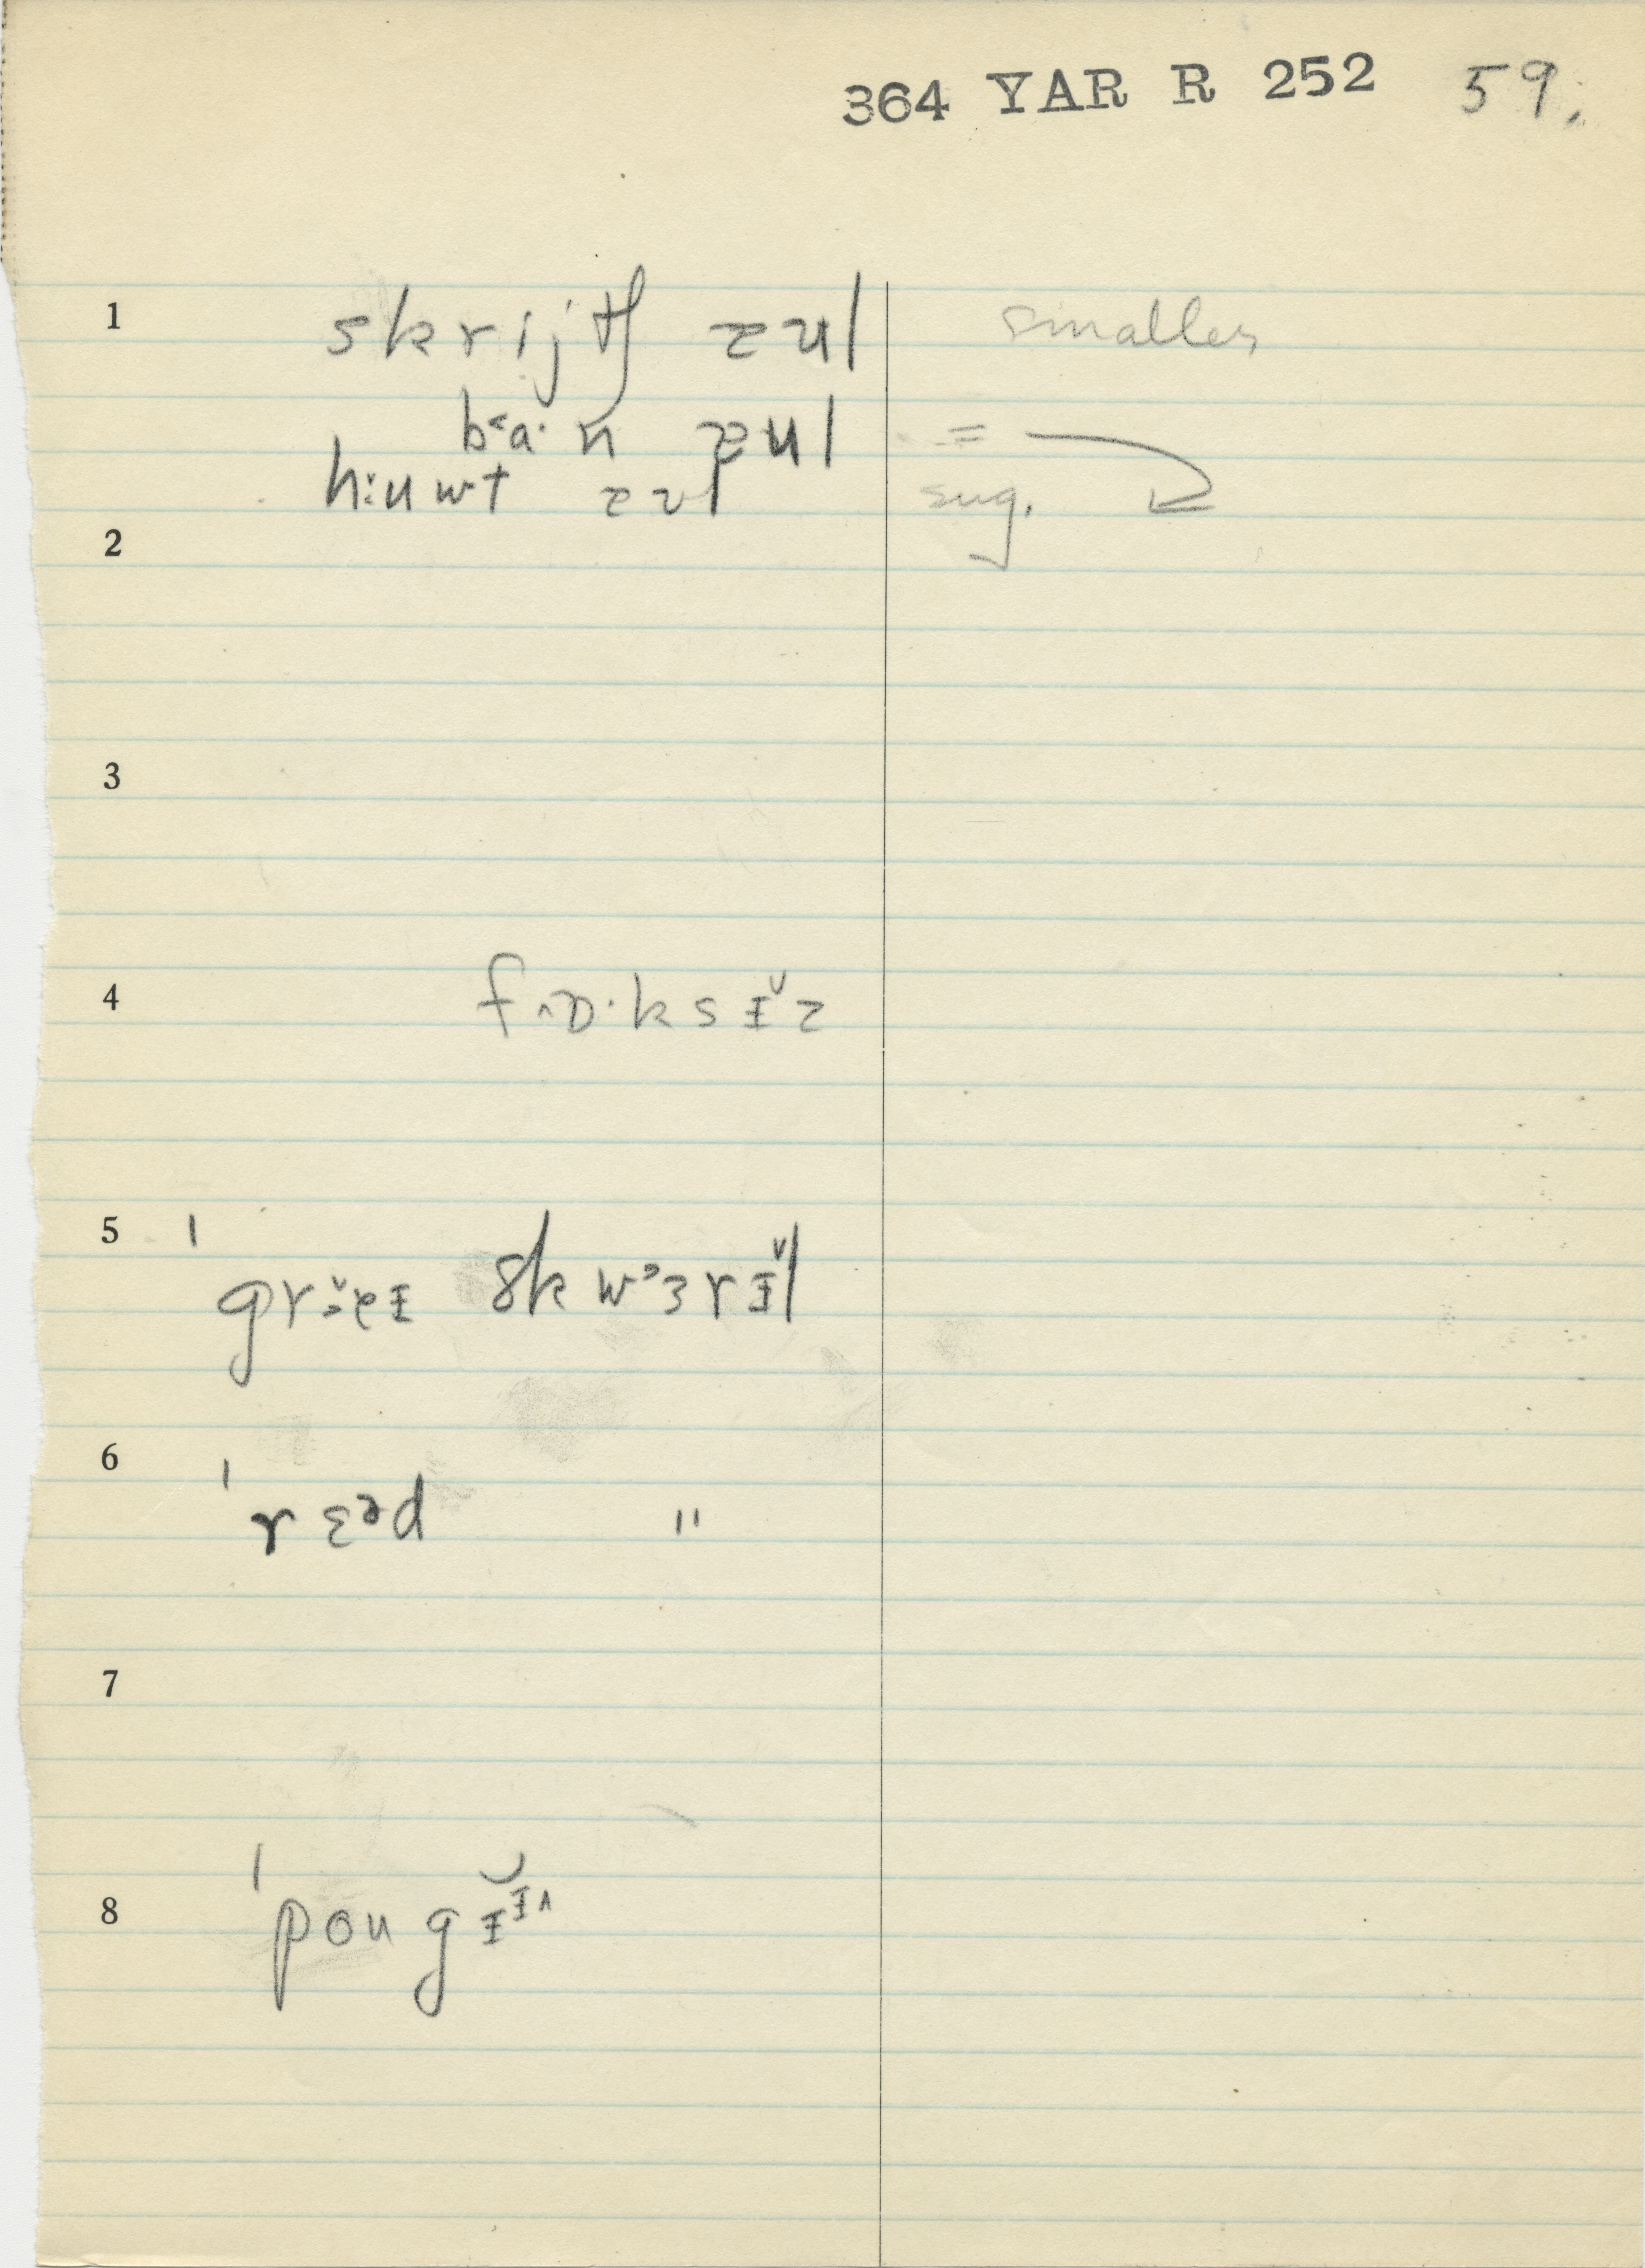 364 YAR R 252 59.
1 skrijtʃ zul smaller
b˂a· n zul =
h:uwt zul sug.
2
3
4 f˄ɒ·ksɪ̆z
5 ˈgrɜ̆eɪ skwᵊɜrɪ̆l
6 ˈrɛᵊd "
7
8 ˈpougɪᶦ˄